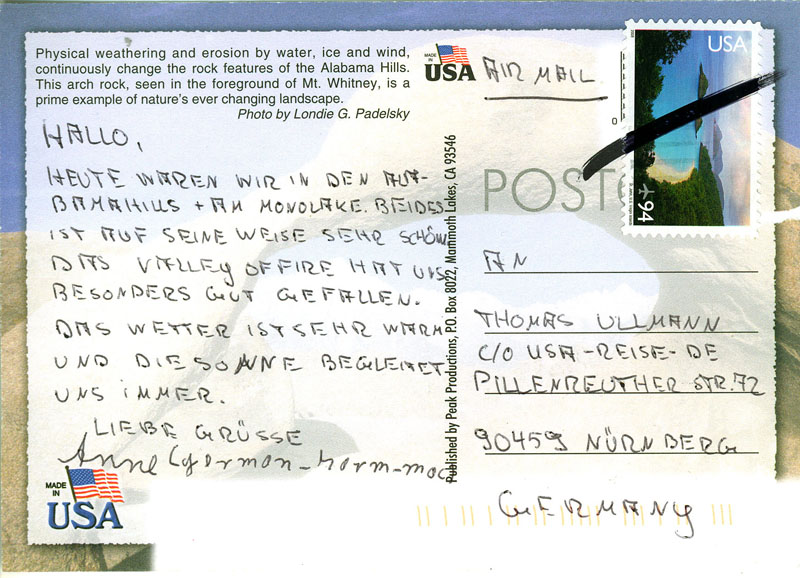 Physical weathering and erosion by water, ice and wind,
continuously change the rock features of the Alabama Hills.
This arch rock, seen in the foreground of Mt. Whitney, is a
prime example of nature's ever changing landscape.
Photo by Londie G. Padelsky
HALLO,
HEUTE WAREN WIR IN DEN ALA-
BAMAHILLS + AM MONOLAKE. BEIDES
IST AUF SEINE WEISE SEHR SCHÖN
DAS VALLEY OF FIRE HAT UNS
BESONDERS GUT GEFALLEN.
DAS WETTER IST SEHR WARM
UND DIE SONNE BEGLEITET
UNS IMMER.
LIEBE GRÜSSE
Anne
MADE
IN
USA
MADE
IN
USA
Published by Peak Productions, P.O. Box 8022, Mammoth Lakes, CA 93546
AIR MAIL
POST
USA
94
AN
THOMAS ULLMANN
C/O USA-REISE-DE
PILLENREUTHER STR. 72
90459 NÜRNBERG
GERMANY